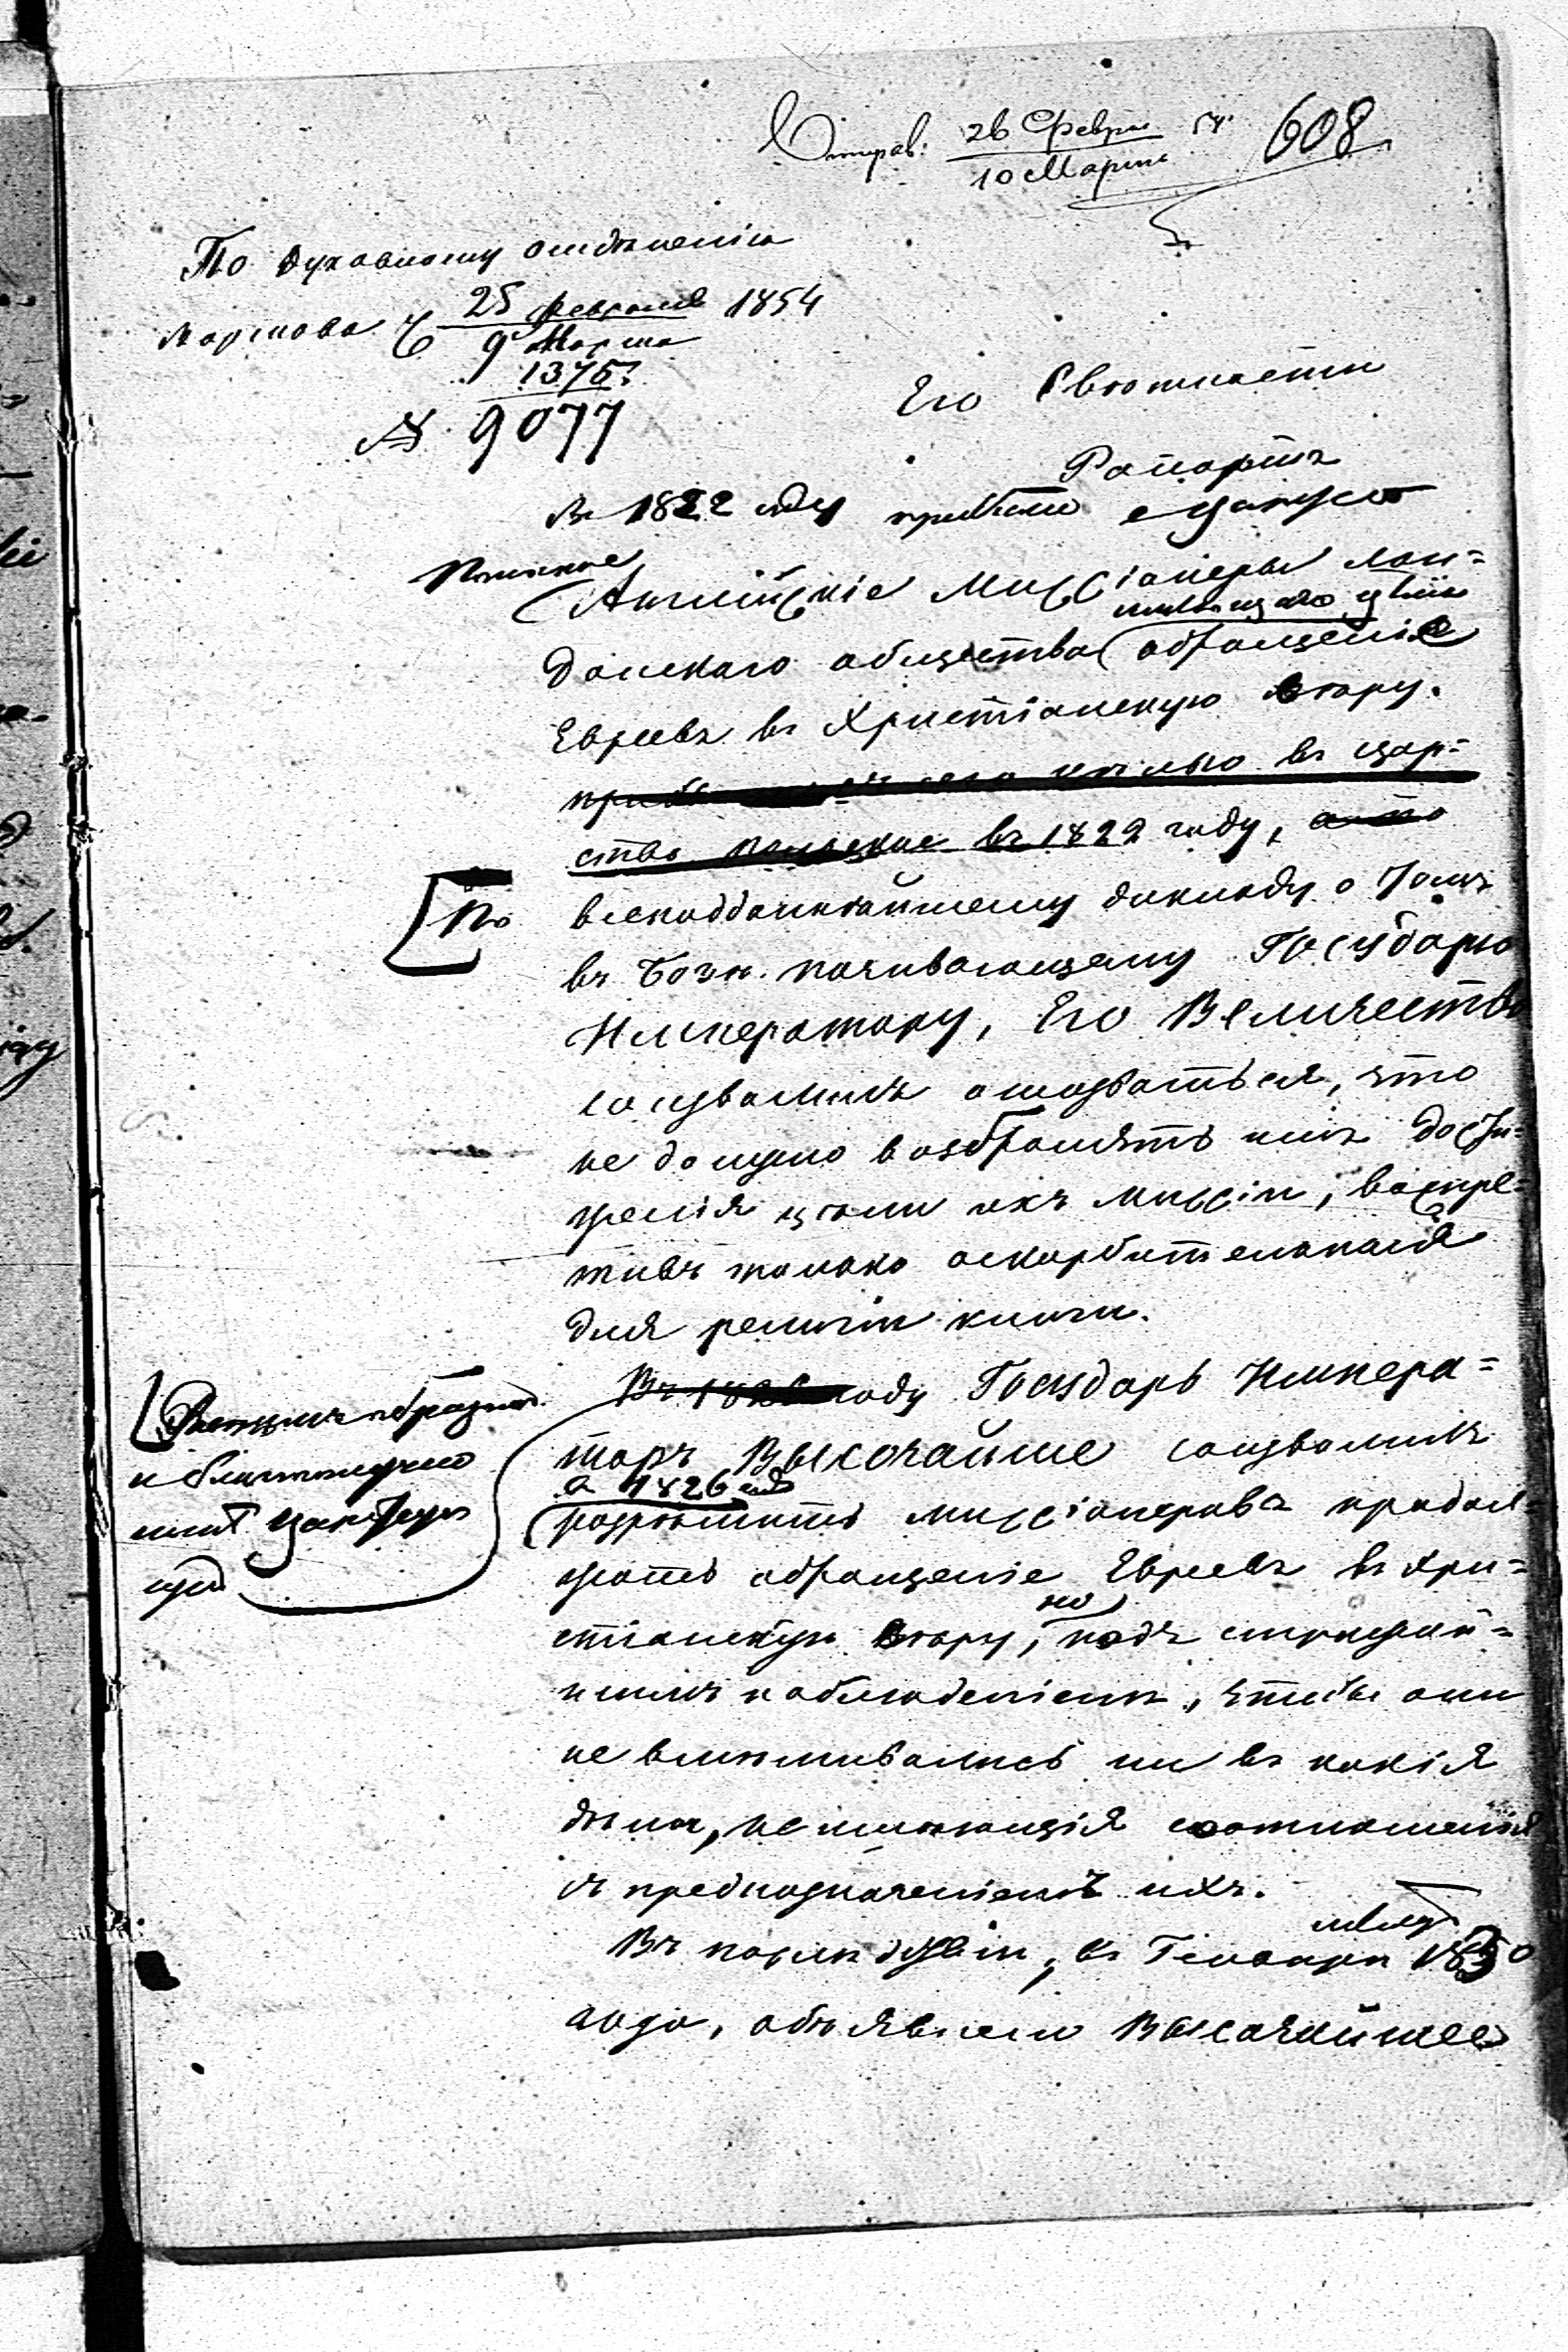 Отправ: 26 Февр 54 608
10 Марта
По духовному отдѣленію
Варшава 25 Февраля 1854
9 Марта
1375
№ 9077
Его Свѣтлости
Рапортъ
Въ 1822 году прибыли в Царство
Польское
Англійскіе Миссіонеры Лон=
имѣющаго цѣлію
донскаго общества обращеніе
Евреевъ въ Христіанскую вѣру.
въ Цар=
ство Польское въ 1822 году,
По всеподданнѣйшему докладу о томъ
въ Бозѣ почивающему Государю
Императору, Его Величество
соизволилъ отозваться, что
не должно возбранять имъ дости=
женія цѣли ихъ миссіи, воспре=
тивъ только оскорбительныя
для религіи книги.
Въ году Государь Импера=
торъ Высочайше соизволилъ
в 1826 году
разрѣшить миссіонерамъ продол=
жать обращеніе Евреевъ въ Хри=
но
стіанскую вѣру, подъ строжай=
шимъ наблюденіемъ, чтобы они
не вмѣшивались ни въ какія
дѣла, не имѣющія соотношенія
съ предназначеніемъ ихъ.
Въ послѣдствіи, въ Генварѣ 1830
года, объявлено Высочайшее